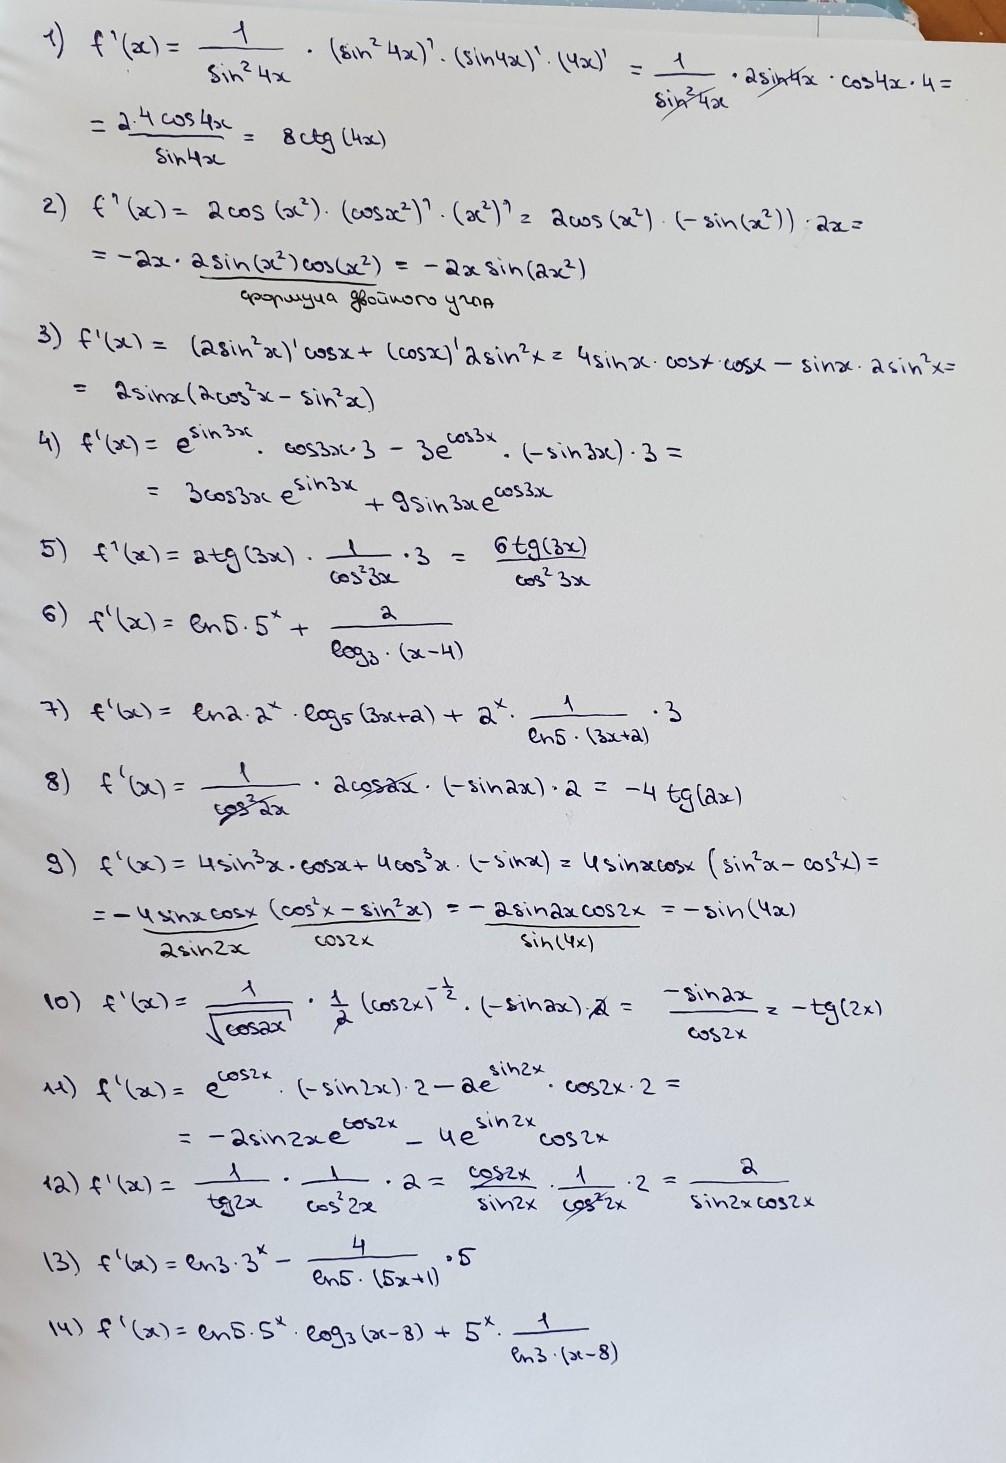 1) f'(x) = 1/(sin²4x) · (sin²4x)' · (sin4x)' · (4x)' = 1/(sin²4x) · 2sin4x · cos4x · 4 =
= (2·4cos4x)/(sin4x) = 8ctg(4x)
2) f'(x) = 2cos(x²) · (cosx²)' · (x²)' = 2cos(x²) · (-sin(x²)) · 2x =
= -2x · 2sin(x²)cos(x²) = -2x sin(2x²)
формула двойного угла
3) f'(x) = (2sin²x)'cosx + (cosx)'2sin²x = 4sinx · cosx · cosx - sinx · 2sin²x =
= 2sinx(2cos²x - sin²x)
4) f'(x) = e^(sin3x) · cos3x · 3 - 3e^(cos3x) · (-sin3x) · 3 =
= 3cos3x e^(sin3x) + 9sin3x e^(cos3x)
5) f'(x) = 2tg(3x) · 1/(cos²3x) · 3 = (6tg(3x))/(cos²3x)
6) f'(x) = ln5 · 5^x + 2/(log₃ · (x-4))
7) f'(x) = ln2 · 2^x · log₅(3x+2) + 2^x · 1/(ln5 · (3x+2)) · 3
8) f'(x) = 1/(cos²2x) · 2cos2x · (-sin2x) · 2 = -4tg(2x)
9) f'(x) = 4sin³x · cosx + 4cos³x · (-sinx) = 4sinxcosx (sin²x - cos²x) =
= -4sinxcosx (cos²x - sin²x) = -2sin2xcos2x = -sin(4x)
2sin2x cos2x sin(4x)
10) f'(x) = 1/√(cos2x) · 1/2 (cos2x)^(-1/2) · (-sin2x) · 2 = (-sin2x)/(cos2x) = -tg(2x)
11) f'(x) = e^(cos2x) · (-sin2x) · 2 - 2e^(sin2x) · cos2x · 2 =
= -2sin2x e^(cos2x) - 4e^(sin2x) cos2x
12) f'(x) = 1/(tg2x) · 1/(cos²2x) · 2 = (cos2x)/(sin2x) · 1/(cos²2x) · 2 = 2/(sin2xcos2x)
13) f'(x) = ln3 · 3^x - 4/(ln5 · (5x+1)) · 5
14) f'(x) = ln5 · 5^x · log₃(x-8) + 5^x · 1/(ln3 · (x-8))